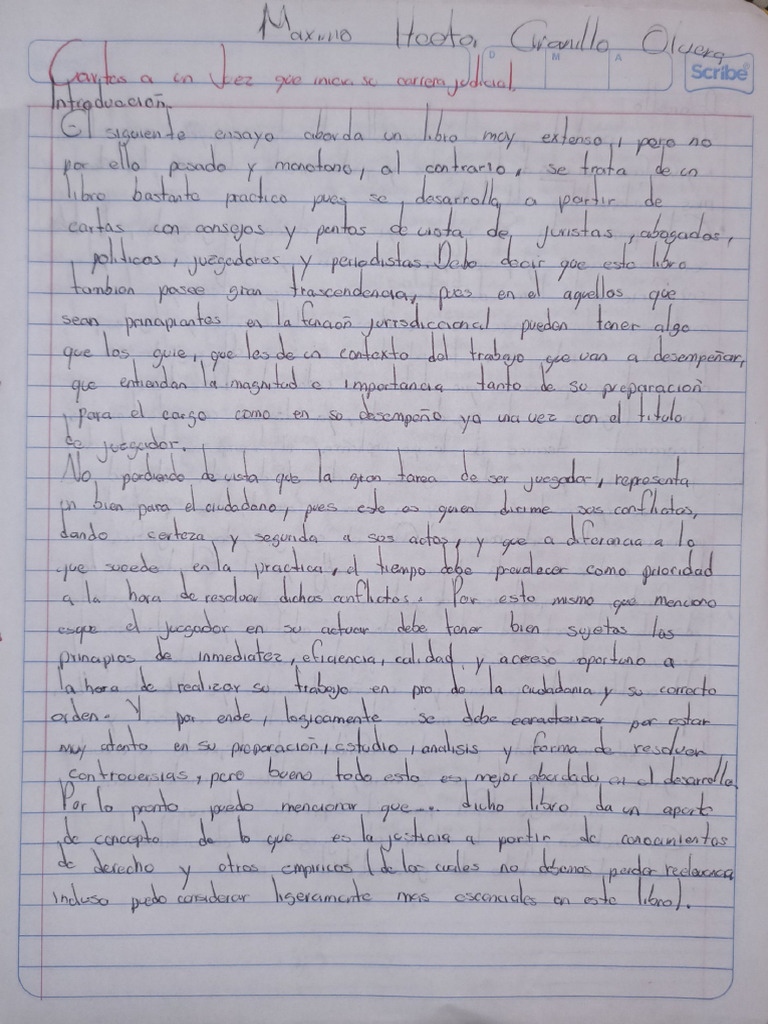 Maximo Hector Granillo Olvera
D M A
Scribe
Cartas a un Juez que inicia su carrera judicial.
Introducción.
El siguiente ensayo aborda un libro muy extenso, pero no
por ello pesado y monotono, al contrario, se trata de un
libro bastante practico pues se, desarrolla a partir de
cartas con consejos y puntos de vista de juristas, abogados,
politicos, juegadores y periodistas. Debo decir que este libro
tambien posee gran trascendencia, pues en el aquellos que
sean principiantes en la función jurisdiccional pueden tener algo
que los guie, que les de un contexto del trabajo que van a desempeñar,
que entiendan la magnitud e importancia tanto de su preparación
para el cargo como en su desempeño ya una vez con el titulo
de juegador.
No perdiendo de vista que la gran tarea de ser juegador, representa
un bien para el ciudadano, pues este es quien dirime sus conflictos,
dando certeza, y segunda a sus actos, y que a diferencia a lo
que sucede en la practica, el tiempo debe prevalecer como prioridad
a la hora de resolver dichos conflictos. Por esto mismo que menciono
es que el juegador en su actuar debe tener bien sujetas los
principios de inmediatez, eficiencia, calidad y acceso oportuno a
la hora de realizar su trabajo en pro de la ciudadania y su correcto
orden. Y por ende, logicamente se debe caracterizar por estar
muy atento en su preparación, estudio, analisis y forma de resolver
controversias, pero bueno todo esto es mejor abordado en el desarrollo.
Por lo pronto puedo mencionar que... dicho libro da un aporte
de concepto de lo que es la justicia a partir de conocimientos
de derecho y otros empiricos (de los cuales no debemos perder relevancia
incluso puedo considerar ligeramente mas esenciales en este libro).